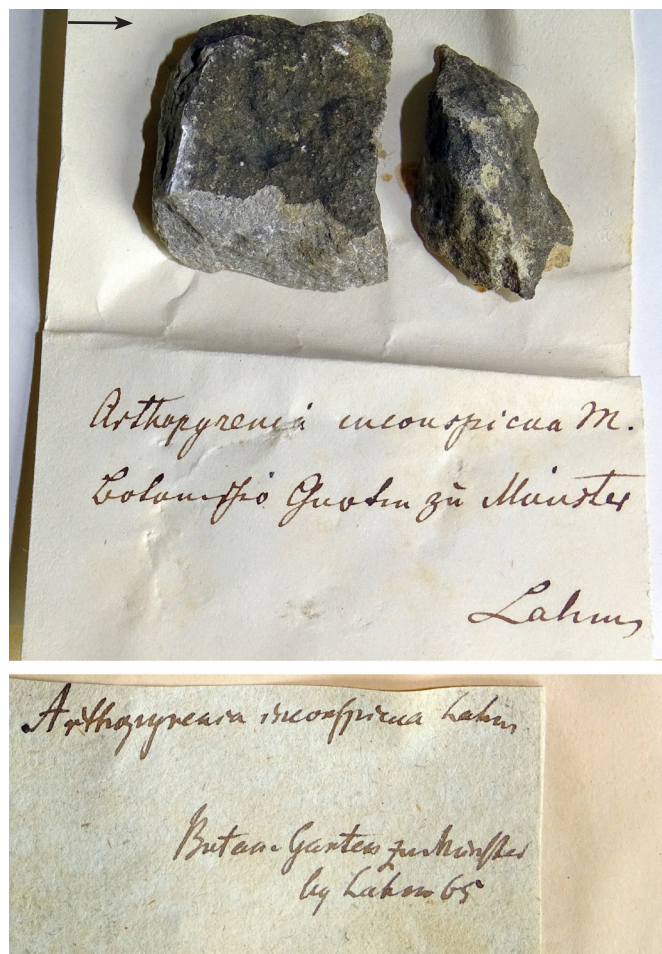 Arthopyrenia inconspicua M.
Botanischer Garten zu Münster
Lahm
Arthopyrenia inconspicua Lahm
Botan. Garten zu Münster
lg Lahm 65